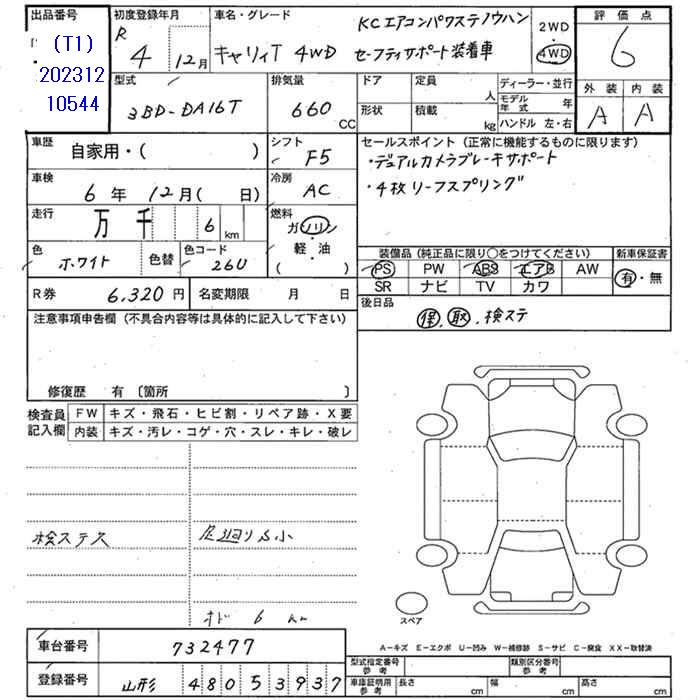 出品番号
(T1)
202312
10544
初度登録年月
R
4 12月
車名・グレード
キャリィT 4WD
KCエアコンパワステノウハン
セーフティサポート装着車
2WD
・
4WD
評価点
6
型式
3BD-DA16T
排気量
660
CC
ドア
定員
人
形状
積載
kg
ディーラー・並行
モデル年式 年
ハンドル 左・右
外装 内装
A A
車歴
自家用・( )
シフト
F5
車検
6年 12月( 日)
冷房
AC
走行
万 千 6 km
燃料
ガソリン
・
軽・油
( )
色
ホワイト
色替
色コード
26U
セールスポイント (正常に機能するものに限ります)
・デュアルカメラブレーキサポート
・4枚リーフスプリング
装備品(純正品に限り○をつけてください)
PS PW ABS エアB AW
SR ナビ TV カワ
新車保証書
有・無
R券 6,320円 名変期限 月 日
後日品
保、取、検ステ
注意事項申告欄(不具合内容等は具体的に記入して下さい)
修復歴 有〔箇所 〕
検査員記入欄
FW キズ・飛石・ヒビ割・リペア跡・X要
内装 キズ・汚レ・コゲ・穴・スレ・キレ・破レ
検ステス
足廻りS小
オド 6 km
スペア
A-キズ E-エクボ U-凹み W-補修跡 S-サビ C-腐食 XX-取替済
車台番号 732477
登録番号 山形 480 5 3937
型式指定番号 参考
類別区分番号 参考
車庫証明用 参考 長さ cm 幅 cm 高さ cm